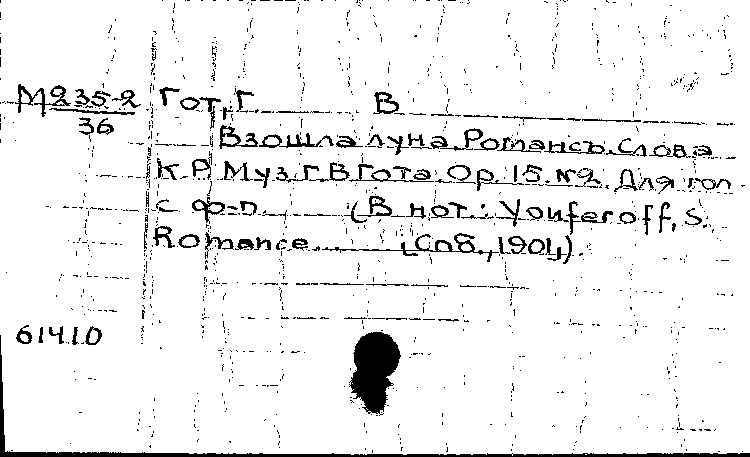 М235-2 Гот, Г. В
36
Взошла луна. Романсъ. Слова
К.Р. Муз. Г.В Гота. Op. 15. №2. Для гол
с ф-п. (В нот.: Youferoff, S.
Romance... [Спб., 1901,]).
61410